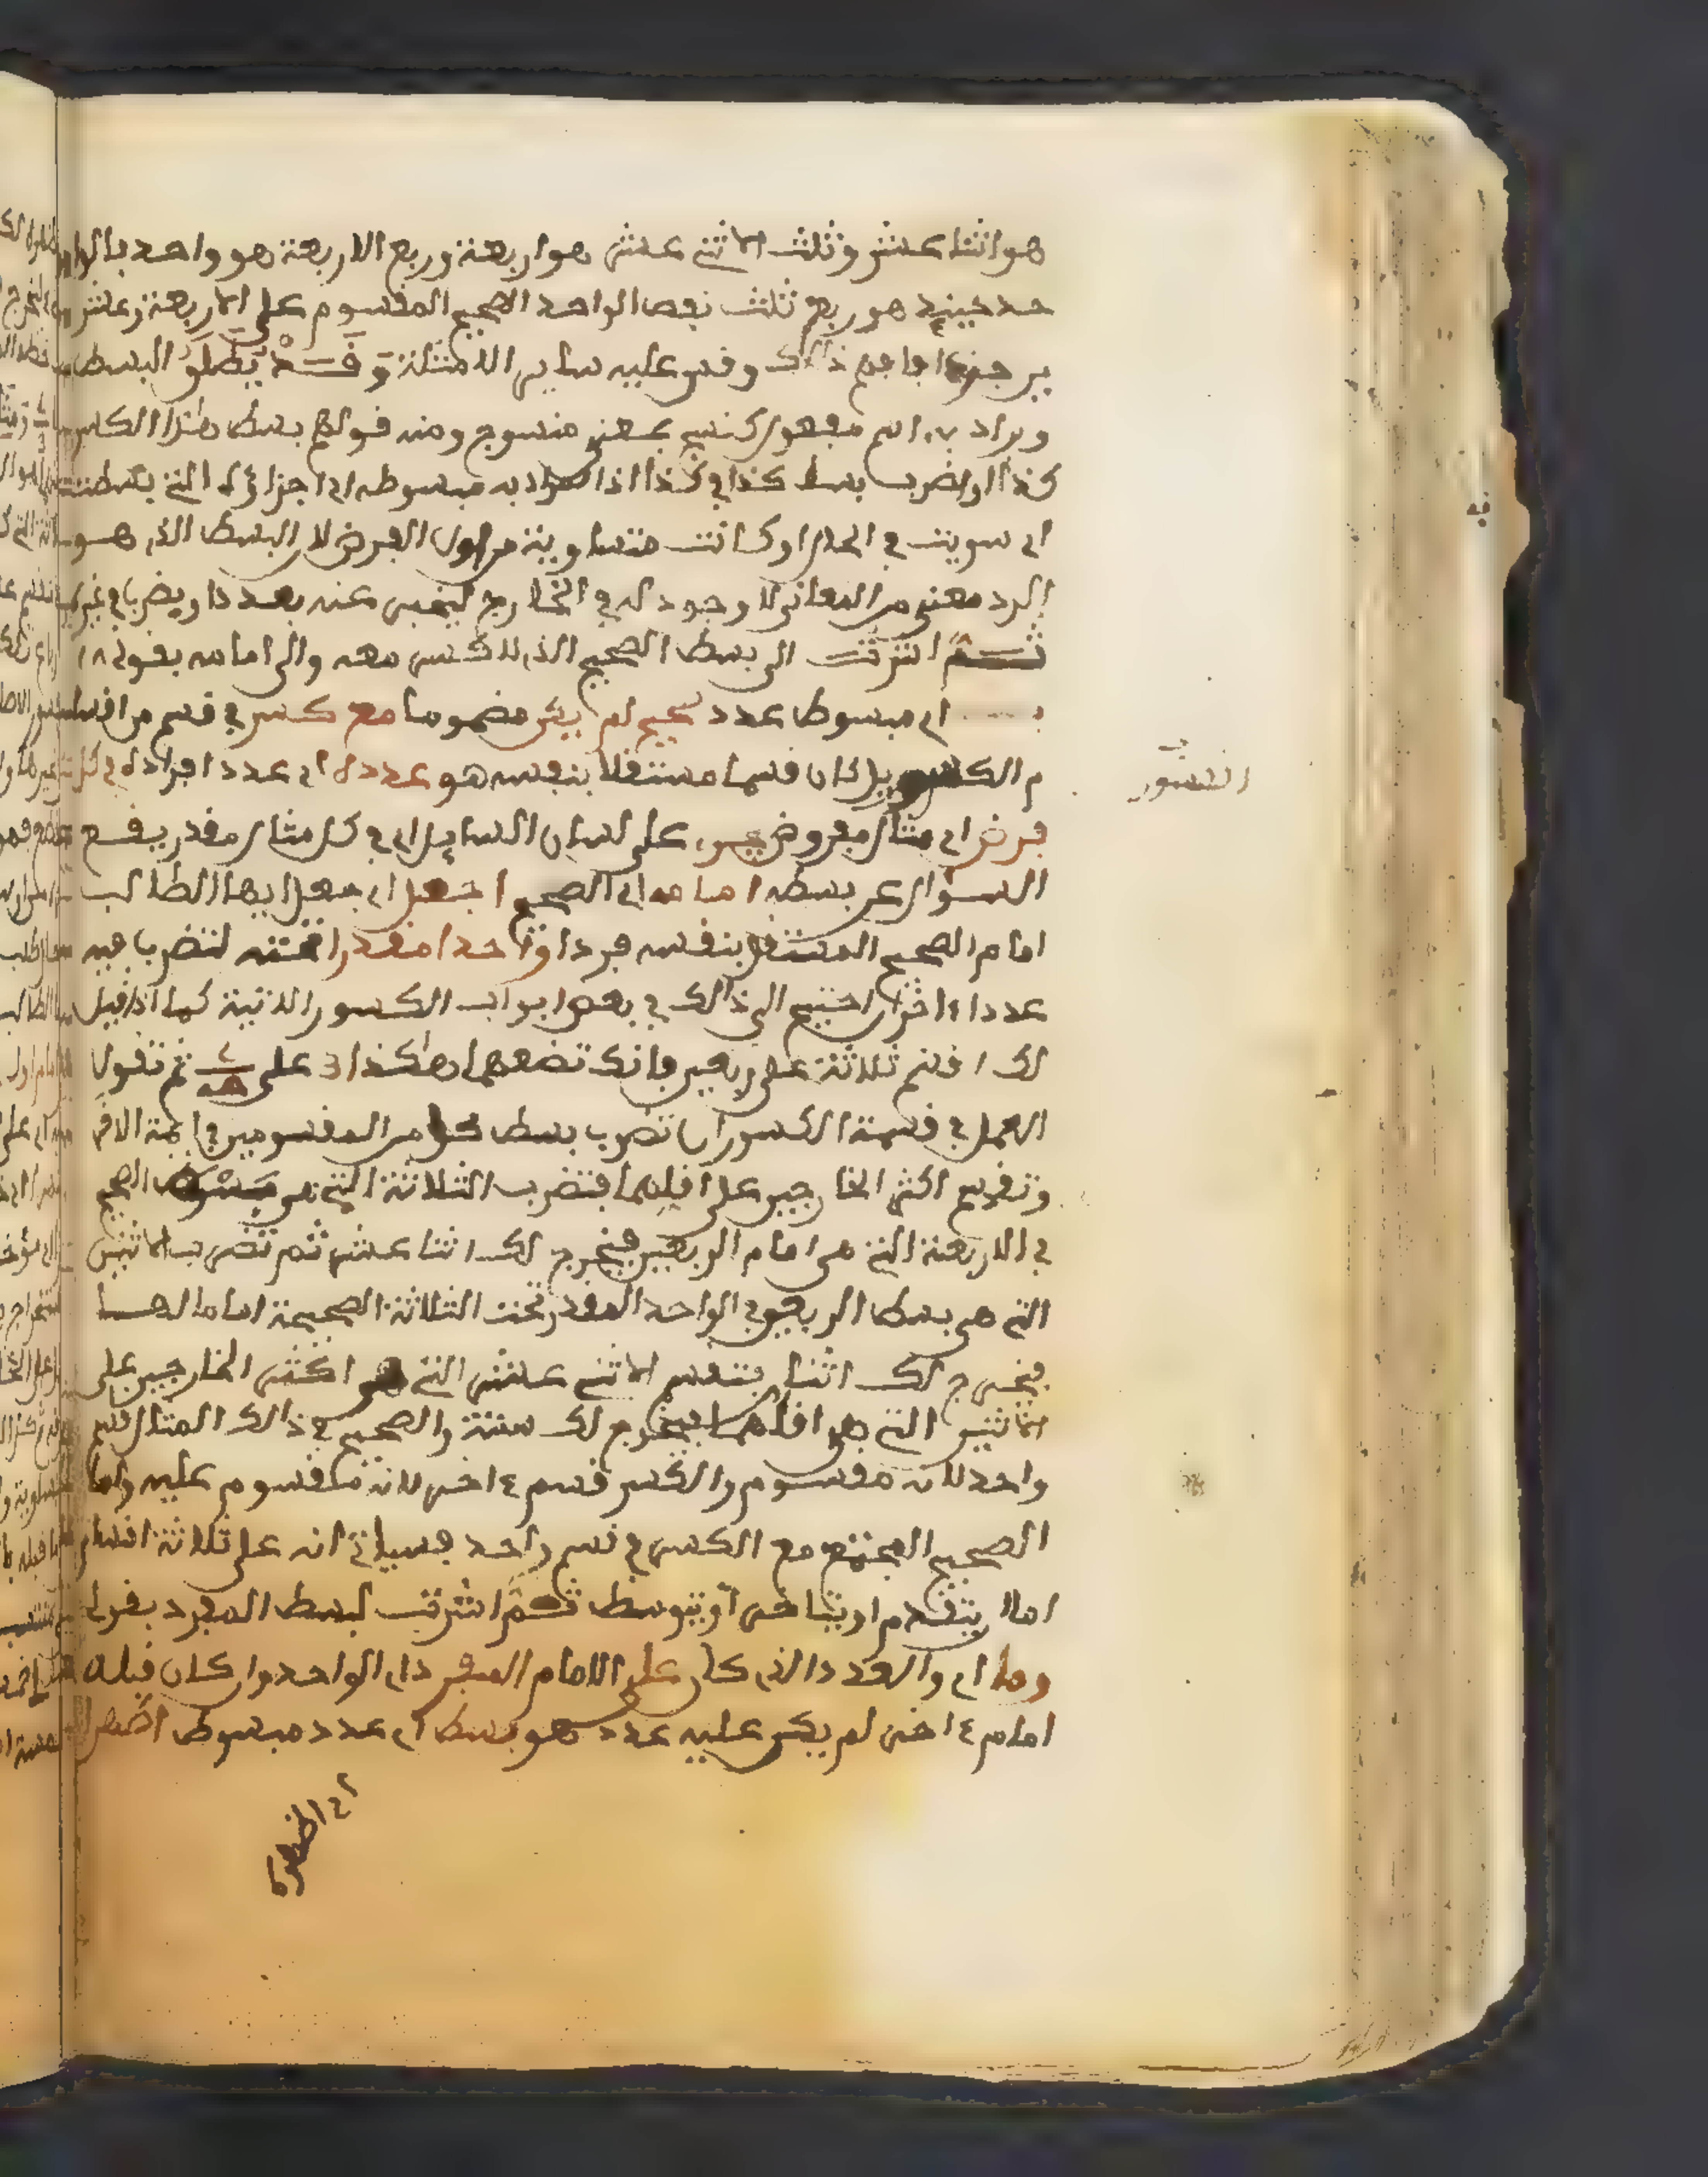 هو اثنا عشر وثلث الاثني عشر هو اربعة وربع الاربعة هو واحد بالوا
حد حينئذ هو ربع ثلث نصف الواحد الصحيح المقسوم على الاربعة وعشر
ين جزءا فافهم ذالك وقس عليه ساير الامثلة وقد يطلق البسط
ويراد به اسم مفعول كنسج بمعنى منسوج ومنه قولهم بسط هذا الكسر
كذا او اضرب بسط كذا في كذا اذ المراد به مبسوطه اي اجزاؤه التي بسطت
اي سويت في الحال او كانت متساوية من اول الفرض لا البسط الذي هو
الرد معنى من المعاني لا وجود له في الخارج ليخبر عنه بعدد او يضرب في غيره
ثم اشرت الى بسط الصحيح الذي لا كسر معه والى امامه بقولي
اي مبسوط عدد صحيح لم يكن مضموما مع كسر في قسم من اقسا
م الكسور بل كان قسما مستقلا بنفسه هو عدده اي عدد افراده في كل
فرض اي مثال مفروض على لسان السايل اي في كل مثال مقدر يقع
السؤال عن بسطه امامه اي الصحيح اجعل اي جعل ايها الطالب
امام الصحيح المستقل بنفسه فردا واحدا مقدرا تحته لتضرب فيه
عددا اخر ان احتيج الى ذالك في بعض ابواب الكسور الاتية كما اذا قيل
لك اقسم ثلاثة على ربعين فانك تضعهما هكذا 3 على ثم تقول
العمل في قسمة الكسور ان تضرب بسط كل من المقسومين في ايمة الاخر
وتقسم اكثر الخارجين على اقلهما فتضرب الثلاثة التي هي بسط الصحيح
في الاربعة التي هي امام الربعين فيخرج لك اثنا عشر ثم تضرب الاثنين
التي هي بسط الربعين في الواحد المقدر تحت الثلاثة الصحيحة اماما لها
فيخرج لك اثنان فتقسم الاثني عشر التي هي اكثر الخارجين على
الاثنين التي هي اقلهما فيخرج لك ستة والصحيح في ذالك المثال قسم
واحد لانه مقسوم والكسر قسم اخر لانه مقسوم عليه واما
الصحيح المجتمع مع الكسر في قسم واحد فسياتي انه على ثلاثة اقسام
اما ان يتقدم او يتاخر او يتوسط ثم اشرت لبسط المفرد بقولي
وما اي والعدد الذي كان على الامام المفرد اي الواحد وان كان قبله
امام اخر لم يكن عليه عدد هو بسط اي عدد مبسوط اظهر
الكسور